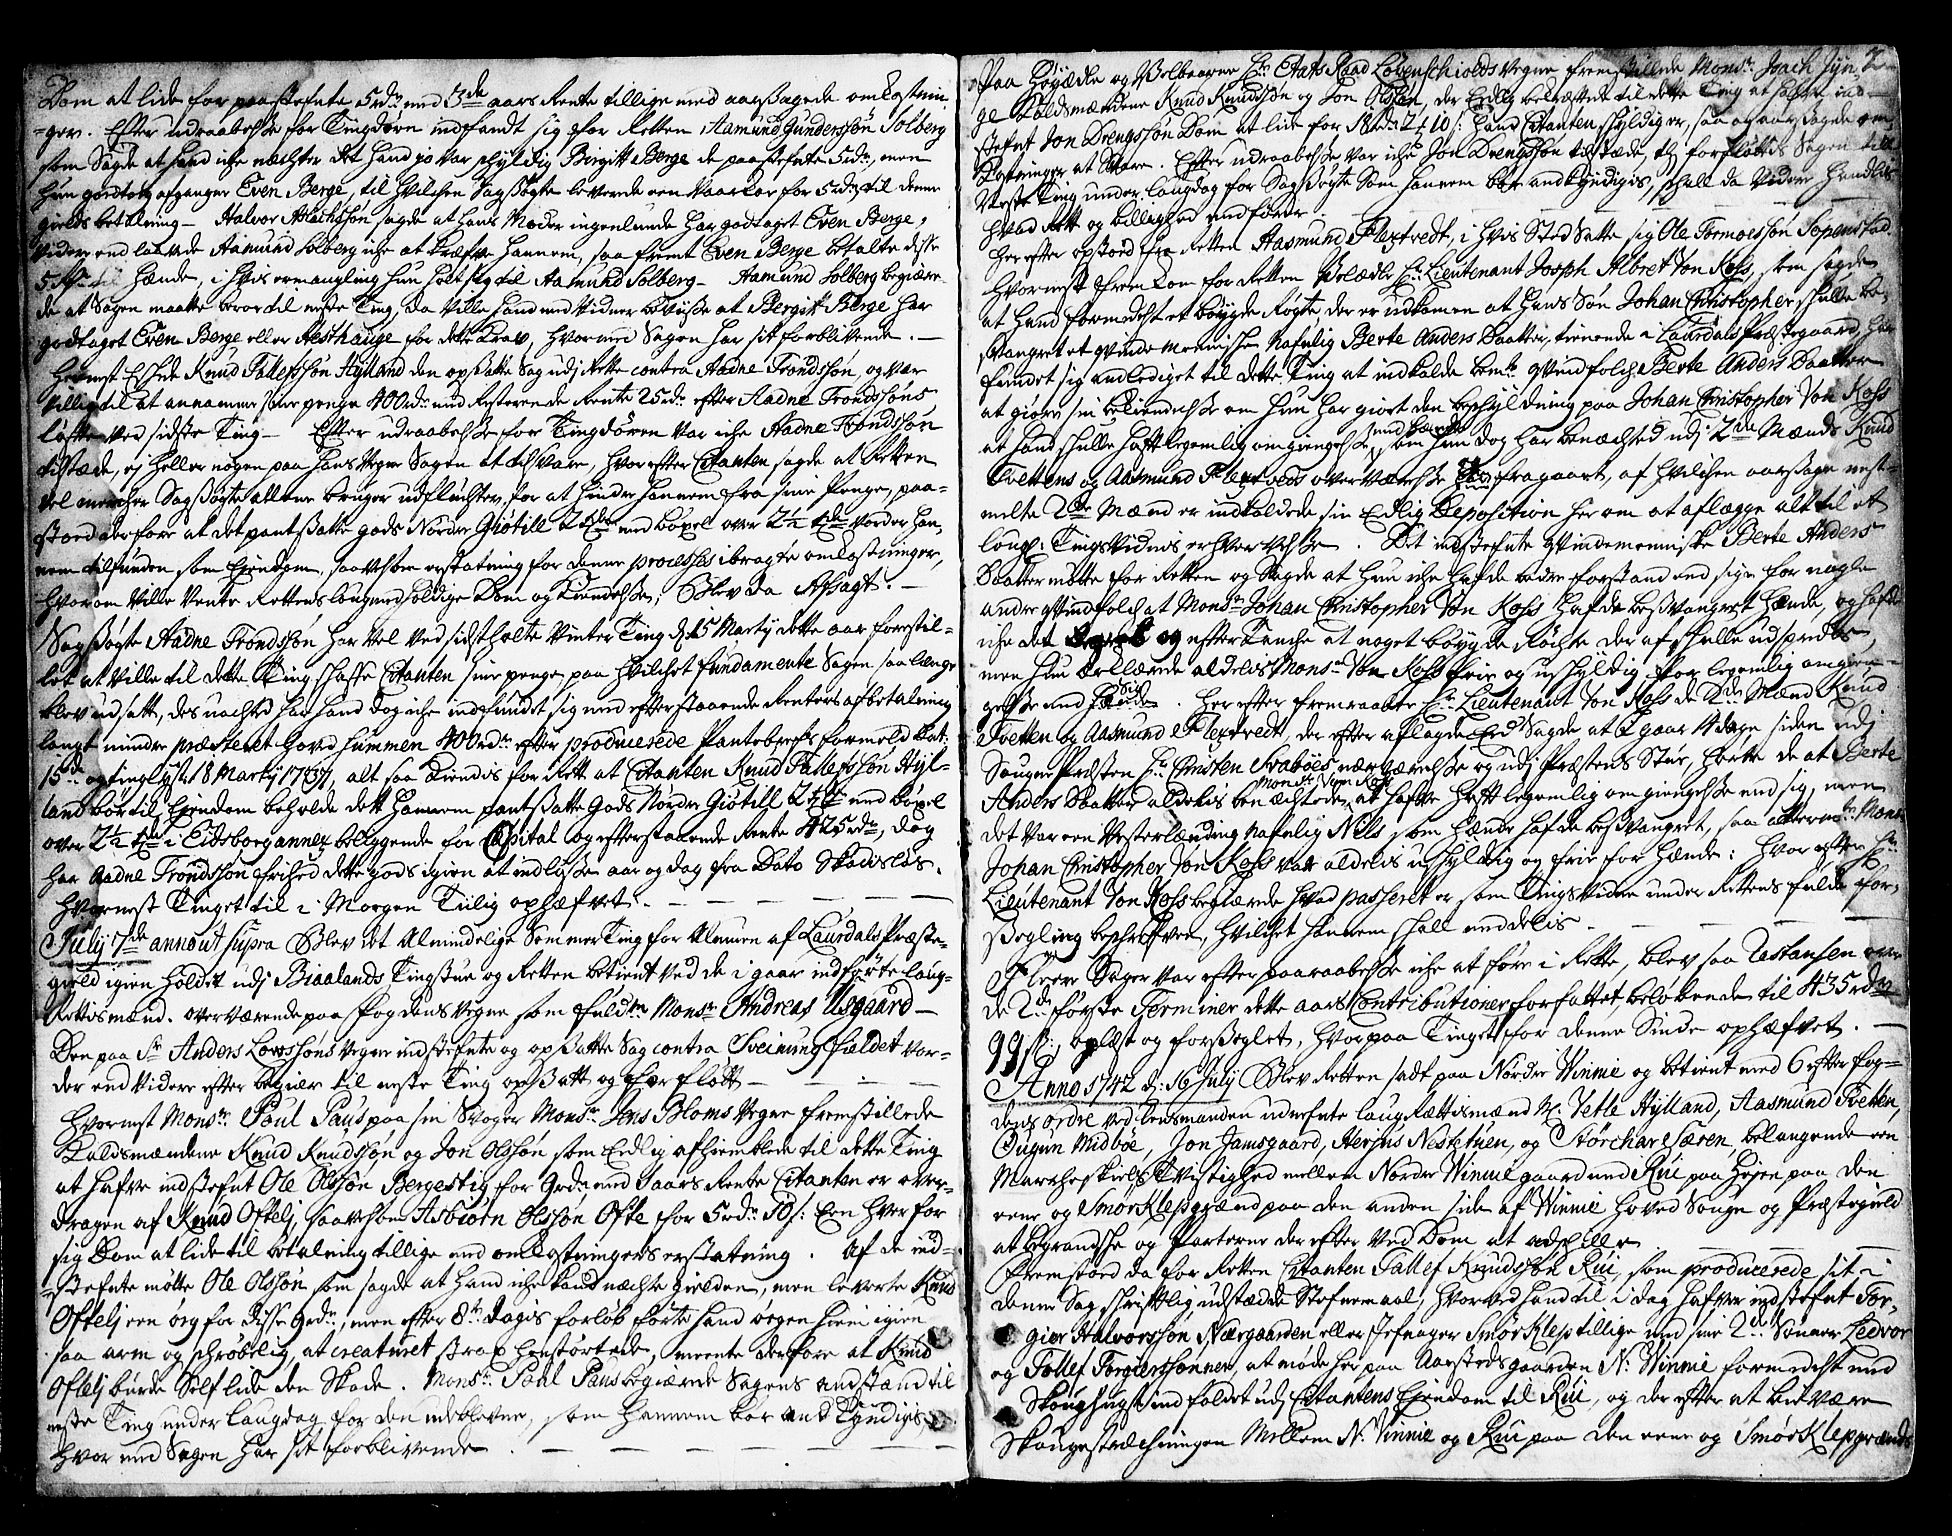 Dom at lide for paastefnte 5rdr med 3de aars Rente tillige med aarsagede omkostnin-
=ger. Efter udraabelsse for Tingdøren indfandt sig for Retten Aamund Gunderssøn Solberg
som Sagde at hand iche nechter det hand jo var schyldig Birgitte Berge de paastefnte 5rdr, men
hun godtog afganger Even Berge, til hvilchen Sagsøgte leverede een Vaarkor for 5rdr til denne
gields betalning – Halvor Aslachssøn sagde at hans Moder ingenlunde har godtaget Even Berge,
videre end lovede Aamund Solberg iche at kræfve hannem, saa fremt Even Berge betalte disse
5rdr til hænde, i hvis ermangling hun holt sig til Aamund Solberg – Aamund Solberg begiære-
de at Sagen maatte beroe til neste Ting, da Ville hand med Vidner bevisse at Bergit Berge har
godtaget Even Berge eller Aesthauge for dette Krav, hvormed Sagen har sit forblivende. –
Hernest Eschede Knud Tallefssøn Hylland den opsatte Sag udj Rette contra Aadne Trondssøn, og var
villig til at annamme sine penge 400rdr med Resterende Rente 25rdr efter Aadne Trondssøns
løfte ved sidste Ting – Efter udraabelsse for Tingdøren Var iche Aadne Trondssøn
tilstæde, ej heller nogen paa hans Vegne Sagen at tilsvare, hvorefter Citanten sagde at Retten
vel mercher Sagsøgte alleene bruger udflugter, for at hindre hannem fra sine Penge, paa-
stod derfore at det pantsatte gods Nordre Giøtill 2 tdr med bøxel over 2½ tdr vorder han-
nem tilfunden som Ejendom, saavelsom erstatning for denne processes ibragte omkostninger,
hvorom Ville Vente Rettens lougmedholdige Dom og Kiendelsse; Blev da Afsagt. –
Sagsøgte Aadne Trondssøn har vel ved sidstholte Vinter Ting d: 15 Martij dette aar forestil-
let at ville til dette Ting schaffe Citanten sine penge, paa hvilchet fundamente Sagen saa længe
blev udsatt, des uachted har hand dog iche indfundet sig med efterstaaende Renters afbetaling
langt mindre præsteret hoved summen 400rdr efter producerede Pantebrefs formeld Dat:
15de og tinglyst 18 Martij 1737, alt saa kiendis for Rett at Citanten Knud Tallefssøn Hyl-
land bør til Ejendom beholde dett hannem pantsatte Gods Nordre Giøtill 2 tdr med bøxel
over 2½ tdr i Eidsborg annex beliggende for Capital og efterstaaende Rente 425rdr, dog
har Aadne Trondssøn frihed dette gods igien at indløsse aar og dag fra Dato Skadisløs.
Hvornest Tinget til i Morgen Tiilig ophæfvet. – – – – –
Julij 7de anno ut supra Blev det Almindelige Sommer Ting for Almuen af Laurdals Præste-
gield igien holdet udj Biaalands Tingstue og Retten betient ved de i gaar indførte laug-
Rettismænd. overværende paa Fogdens vegne som fuldm: Monsr Andreas Usgaard –
Den paa Sr Anders Lovessøns Vegne indstefnte og opsatte Sag contra Sveinung Fieldet vor-
der end videre efter begiær til neste Ting opsatt og Forfløtt – – –
Hvornest Monsr Povl Paus paa sin Svoger Monsr Jens Bloms Vegne fremstillede
Kaldsmændene Knud Knudssøn og Jon Olssøn som Eedlig afhiemblede til dette Ting
at hafve indstefnt Ole Olssøn Bergestig for 9rdr med 5 aars Rente Citanten er over-
dragen af Knud Oftelj, saavelsom Asbiørn Olssøn Ofte for 5rdr 10s: Een hver for
sig Dom at lide til betalning tillige med omkostningens erstatning. Af de ind-
stefnte møtte Ole Olssøn som sagde at hand iche kand nechte gielden, men leverte Knud
Oftelj een øg for disse 9rdr, men efter 8te dagis forløb førte hand øegen hiem igien
saa arm og schrøbelig, at creaturet strax henstørtede, meente derfore at Knud
Oftelj burde Self lide den Skade. Monsr Pahl Paus begiærede Sagens anstand til
neste Ting under laugdag for den udeblevne, som hannem bør andkyndigis,
hvor med Sagen har sit forblivende. – – – – – –
Paa Høyædle og Velbaarne Hr Etats Raad Løvenschiolds Vegne fremstillede Monsr Joach Jyn-
ge Kaldsmændene Knud Knudssøn og Jon Olssøn, der Eedlig bekræftede til dette Ting at hafve ind-
stefnt Jon Drengssøn Dom at lide for 18rdr 2 10s: hand Citanten schyldig er, saa og aarsagede om-
kostninger at Svare. Efter udraabelsse var iche Jon Drengssøn tilstæde, thj forfløttis Sagen till
Neste Ting under laugdag for Sagsøgte Som hannem bør andkyndigis, schall da Videre handles
hvad Rett og billighed medfører.
Her efter opstod fra Retten Aasmund Flextvedt, i hvis Sted Satte sig Ole Tormoessøn Sopenstad.
Hvornest frem kom for Retten Velædle Hr Lieutenant Joseph Albret Von Koss, som sagde
at hand formedelst et bøygde Røgte der er udkommen at Hans Søn Johan Christopher schulle be-
svangret et qvinde menniske Nafnlig Berte Anders Daatter, tienende i Laurdals Præstegaard, har
fundet sig andlediget til dette Ting at indkalde bemte qvindfolch Berte Anders Daatter
at giøre sin bekiendelsse om hun har giort den beschyldning paa Johan Christopher Von Koss
at hand schulle hafft legemlig omgiengelsse med hænde, som hun dog har benechted udj 2de Mænds Knud
Tvettens og Aasmund Flextveds overværelsse fragaaet, af hvilchen aarsage nest-
melte 2de Mænd er indkaldede sin Eedlig Deposition her om at aflægge alt til et
lougl: Tingsvidnes erhvervelsse. Det indstefnte qvindemenniske Berte Anders
Daatter møtte for Retten og Sagde at hun iche hafde bedre forstand end sige for nogle
andre qvindfolch at Monsr Johan Christopher Von Koss hafde besvangret hænde, og hafde
iche det efter Tanche at noget bøygde Røchte der af schulle udsprædes
men hun erklærede aldeles Monsr Von Koss frie og uschyldig for legemlig omgien-
gelsse med sig. Her efter fremraabte Hr Lieutenant Von Koss de 2de Mænd Knud
Tvetten og Aasmund Flextvedt, der efter aflagde Eed Sagde at i gaar 4 dage siden udj
Sougne Præsten Hr Christen Svaboes nærværelsse og udj Præstens Stue, hørte de at Berte
Anders Daatter aldeles benechtede, at Monsr Von Koss hafde hafft legemlig omgiengelsse med sig, men
det var een Vesterlænding Nafnlig Nils som hænde hafde besvangret, saa at bemte Monsr
Johan Christopher Von Koss var aldelis uschyldig og frie for hænde: hvor efter Hr
Lieutenant Von Koss begiærede hvad passeret er som Tingsvidne under Rettens fulde for-
segling beschrefven, hvilchet hannem schall meddeles. – – –
Fleere Sager var efter paaraabelsse iche at føre i Rette, blev saa Restansen over
de 2de første Terminer dette aars Contributioner forfattet, beløbende til 435rdr
99s:, oplæst og forseglet, hvor paa Tinget for denne Sinde ophæfvet. –
Anno 1742 d: 16 Julij Blev Retten sadt paa Nordre Winnie og betient med 6 efter fog-
dens ordre ved lensmanden udnefnte laugRettismænd N: Tetle Hylland, Aasmund Tvetten,
Ougun Midbøe, Jon Jamsgaard, Herjus Neslestuen, og Størchar Særen, belangende een
Marcheskiels Tvistighed mellem Nordre Winnie gaard med Rui paa Heyen paa den
eene og Smørklepgrænd paa den anden side af Winnie hoved Sougn og Præstegield
at begrandske og Parterne der efter ved Dom at adskille –
Fremstoed da for Retten Citanten Tallef Knudssøn Rui, som producerede sit i
denne Sag schriftlig udstædde Stefnemaal, hvorved hand til i dag hafver indstefnt Tor-
gier Halvorssøn, Nærgaarden eller Stefnager Smørklep tillige med sine 2de Sønner Ledvor
og Tallef Torgierssønner, at møde her paa Aarstedsgaarden N: Winnie formedelst med
Skoughugst indfaldet udj Citantens Ejendom til Rui, og der efter at beevære
Skougestrechningen Mellem N: Vinnie og Rui paa den eene og Smørklepgrænds